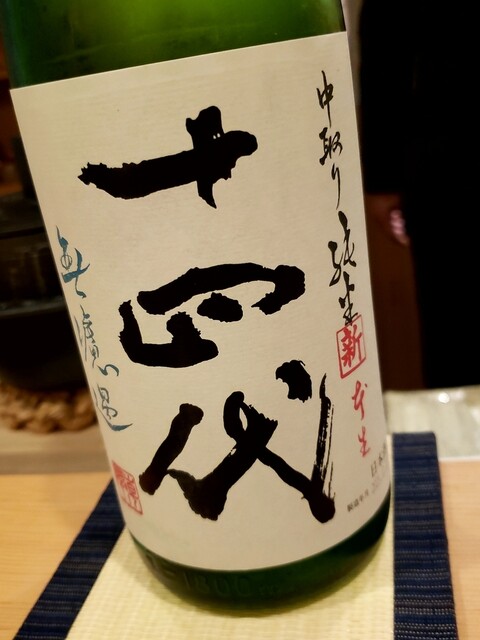 中取り純米
新
本生
十四代
無濾過
日本酒
製造年月
1800